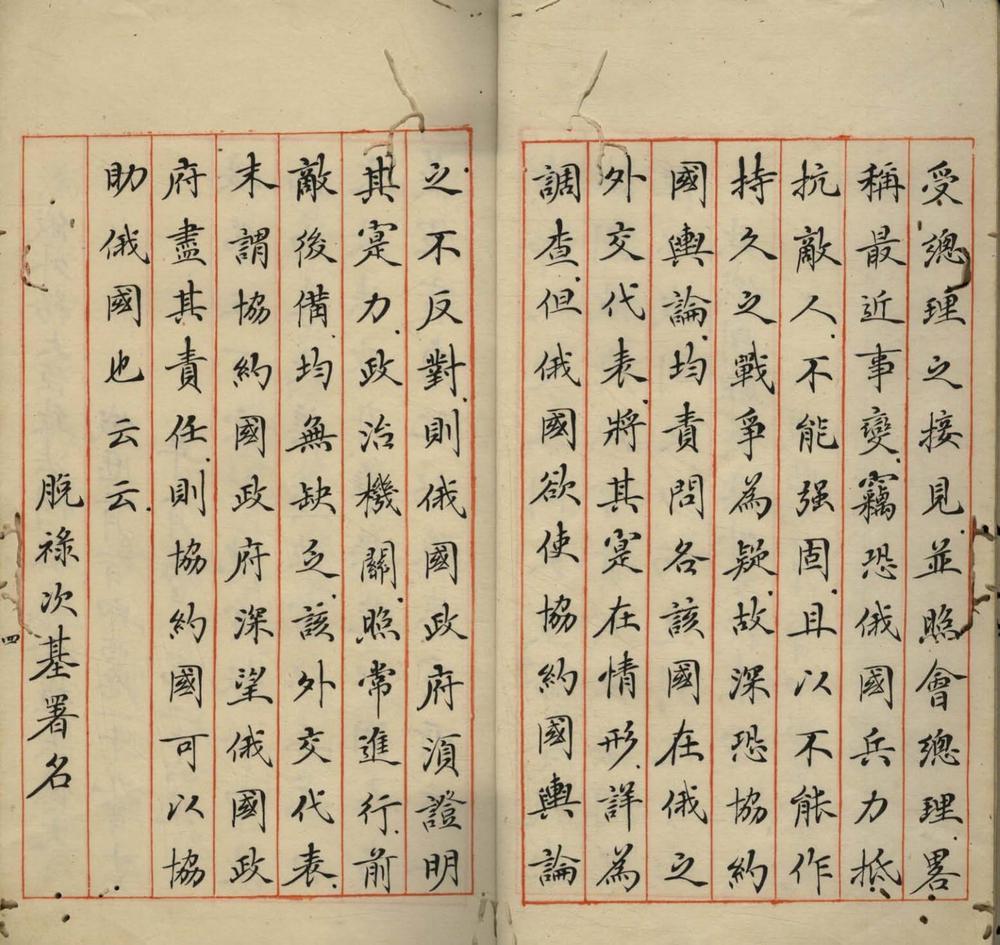 受總理之接見並照會總理畧
稱最近事變竊恐俄國兵力抵
抗敵人不能强固且以不能作
持久之戰爭為疑故深恐協約
國輿論均責問各該國在俄之
外交代表將其寔在情形詳為
調查但俄國欲使協約國輿論
之不反對則俄國政府湏證明
其寔力政治機關照常進行前
敵後備均無缺乏該外交代表
末謂協約國政府深望俄國政
府盡其責任則協約國可以協
助俄國也云云
脫祿次基署名
四